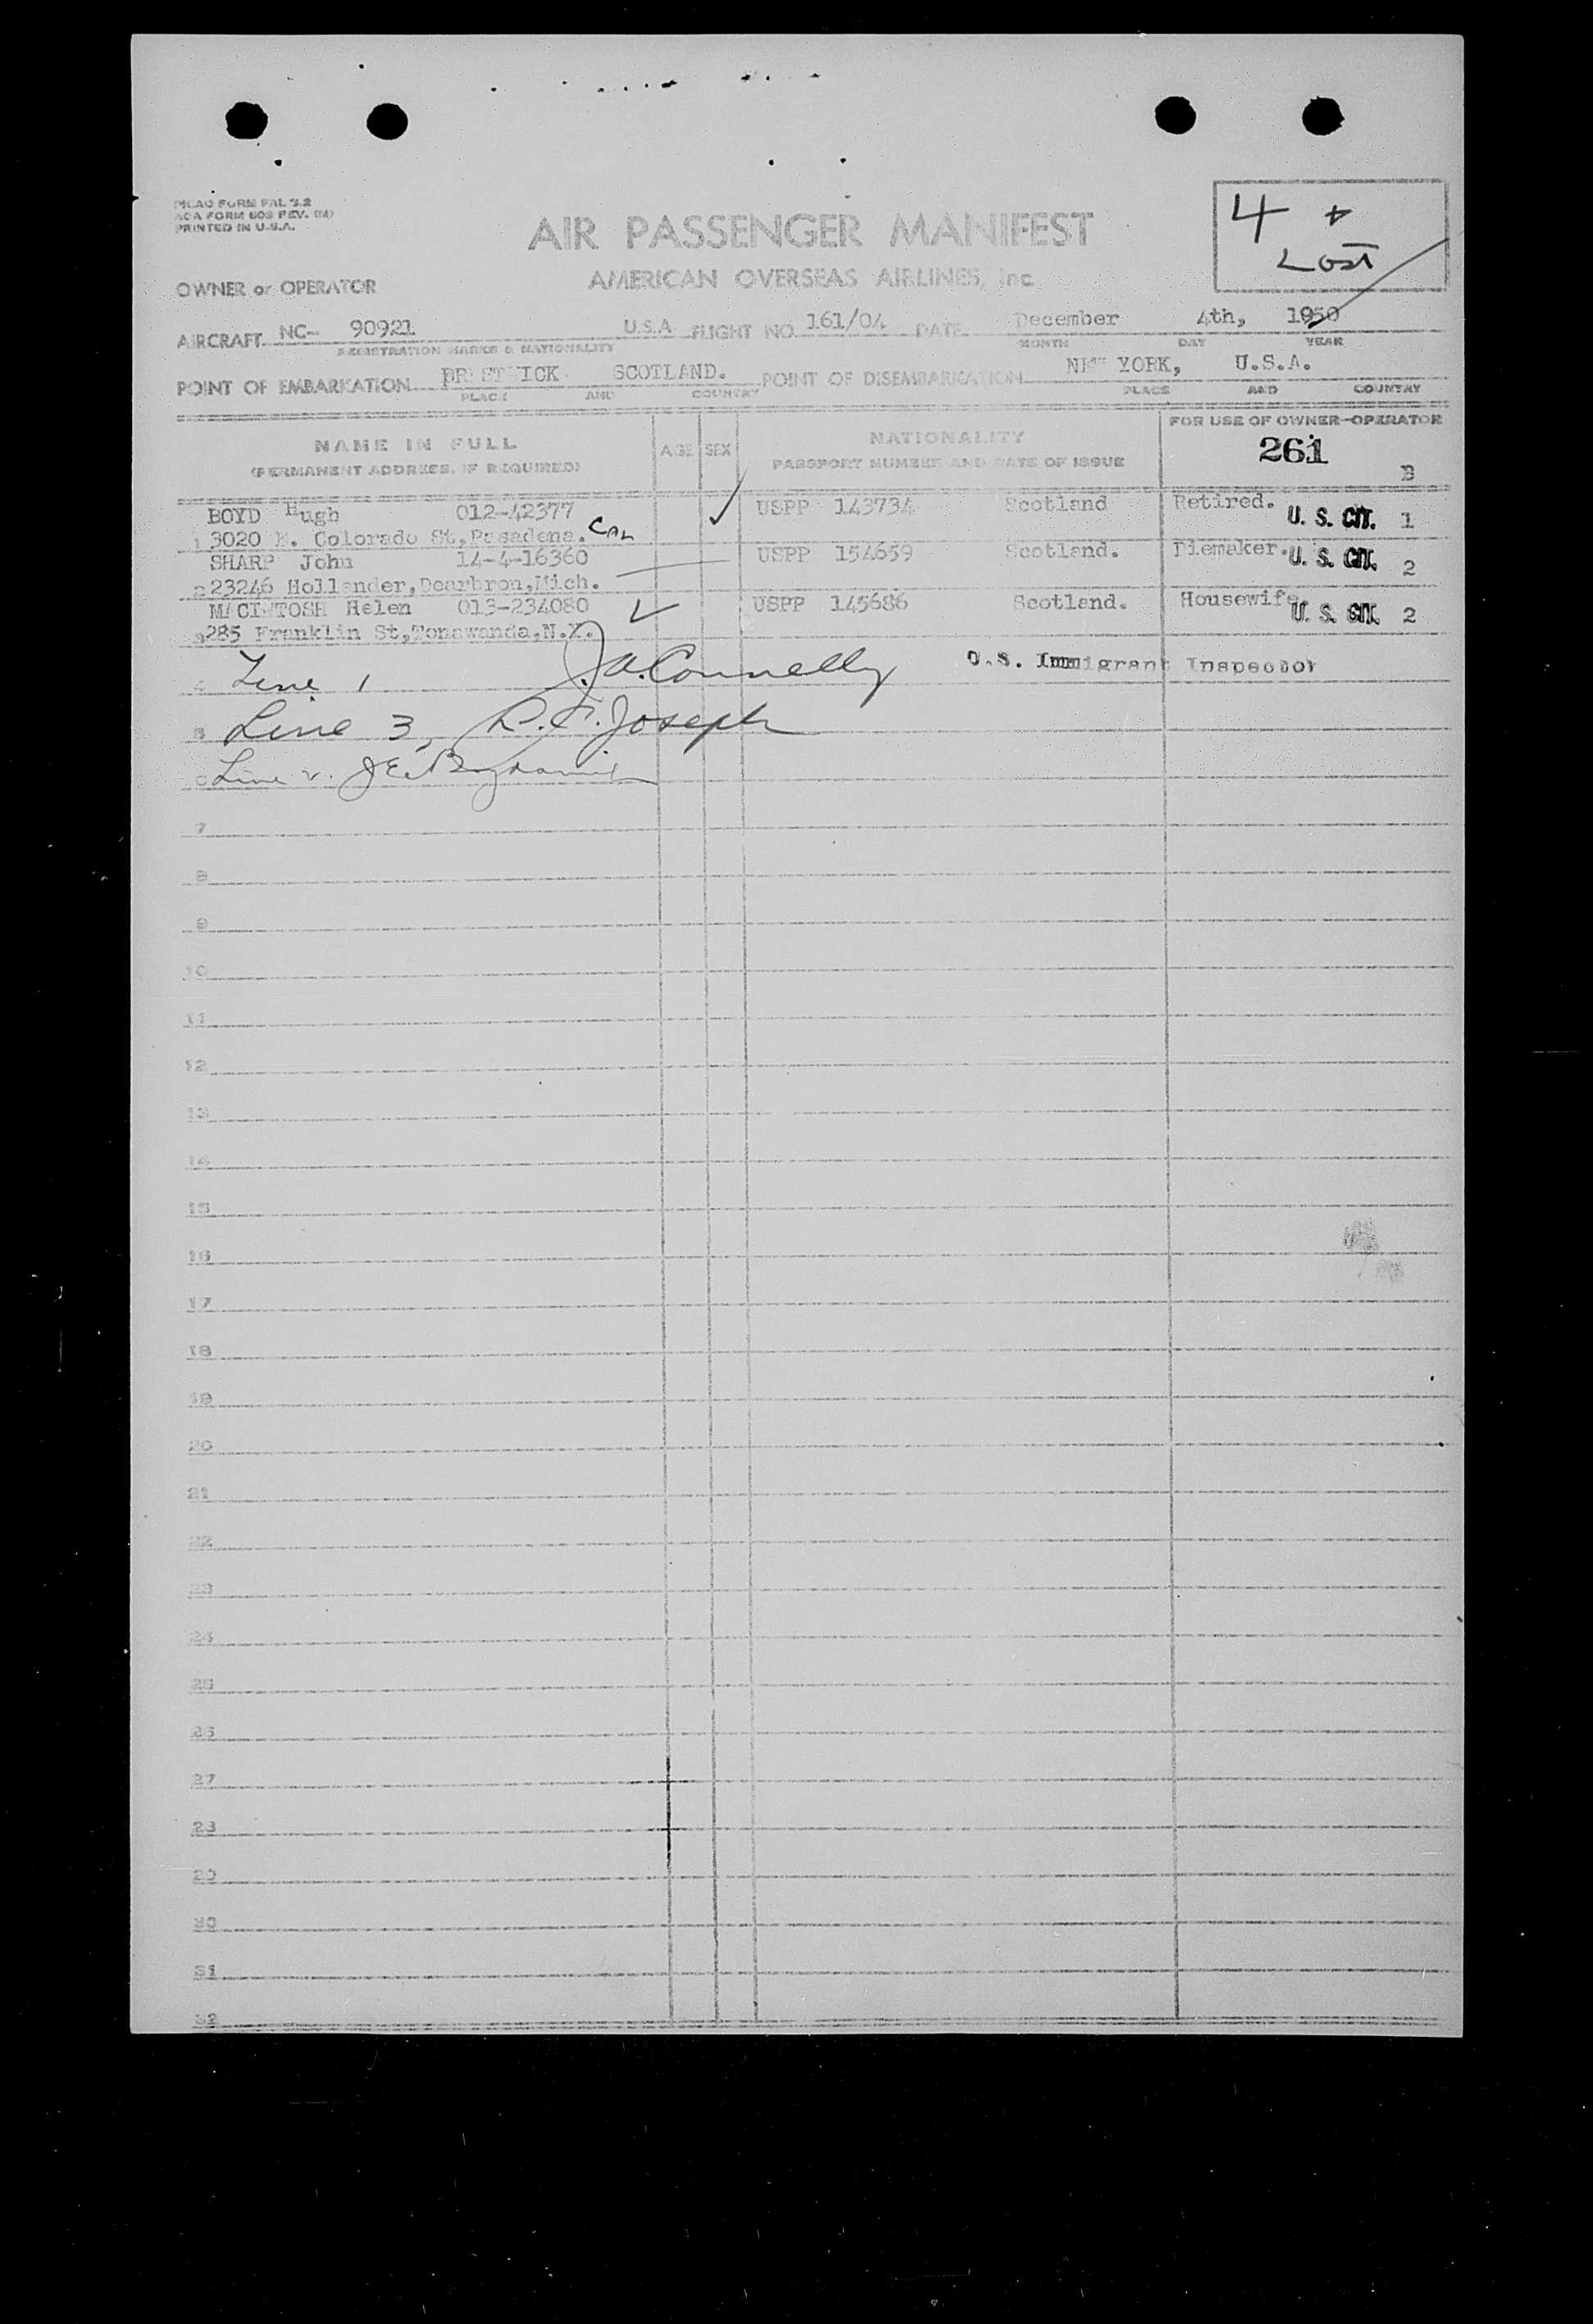 PICAO FORM FAL 3.2
ACA FORM 608 REV. (M)
PRINTED IN U.S.A.
4 +
Lost
AIR PASSENGER MANIFEST
OWNER or OPERATOR AMERICAN OVERSEAS AIRLINES, Inc
AIRCRAFT NC- 90921 U.S.A FLIGHT NO. 161/04 DATE December 4th, 1950
REGISTRATION MARKS & NATIONALITY MONTH DAY YEAR
POINT OF EMBARKATION PRESTWICK SCOTLAND. POINT OF DISEMBARKATION NEW YORK, U.S.A.
PLACE AND COUNTRY PLACE AND COUNTRY
NAME IN FULL AGE SEX NATIONALITY FOR USE OF OWNER-OPERATOR
(PERMANENT ADDRESS, IF REQUIRED) PASSPORT NUMBER AND DATE OF ISSUE 261
B
BOYD Hugh 012-42377 USPP 143734 Scotland Retired. U. S. CIT. 1
1 3020 E. Colorado St,Pasadena. CAL
SHARP John 14-4-16360 USPP 154659 Scotland. Diemaker. U. S. CIT. 2
2 23246 Hollander,Dearbron,Mich.
MACINTOSH Helen 013-234080 USPP 145686 Scotland. Housewife. U. S. CIT. 2
3 285 Franklin St,Tonawanda,N.Y.
4 Line 1 J.A. Connelly U.S. Immigrant Inspector
5 Line 3, R.F. Joseph
6 Line 2.
7
8
9
10
11
12
13
14
15
16
17
18
19
20
21
22
23
24
25
26
27
28
29
30
31
32